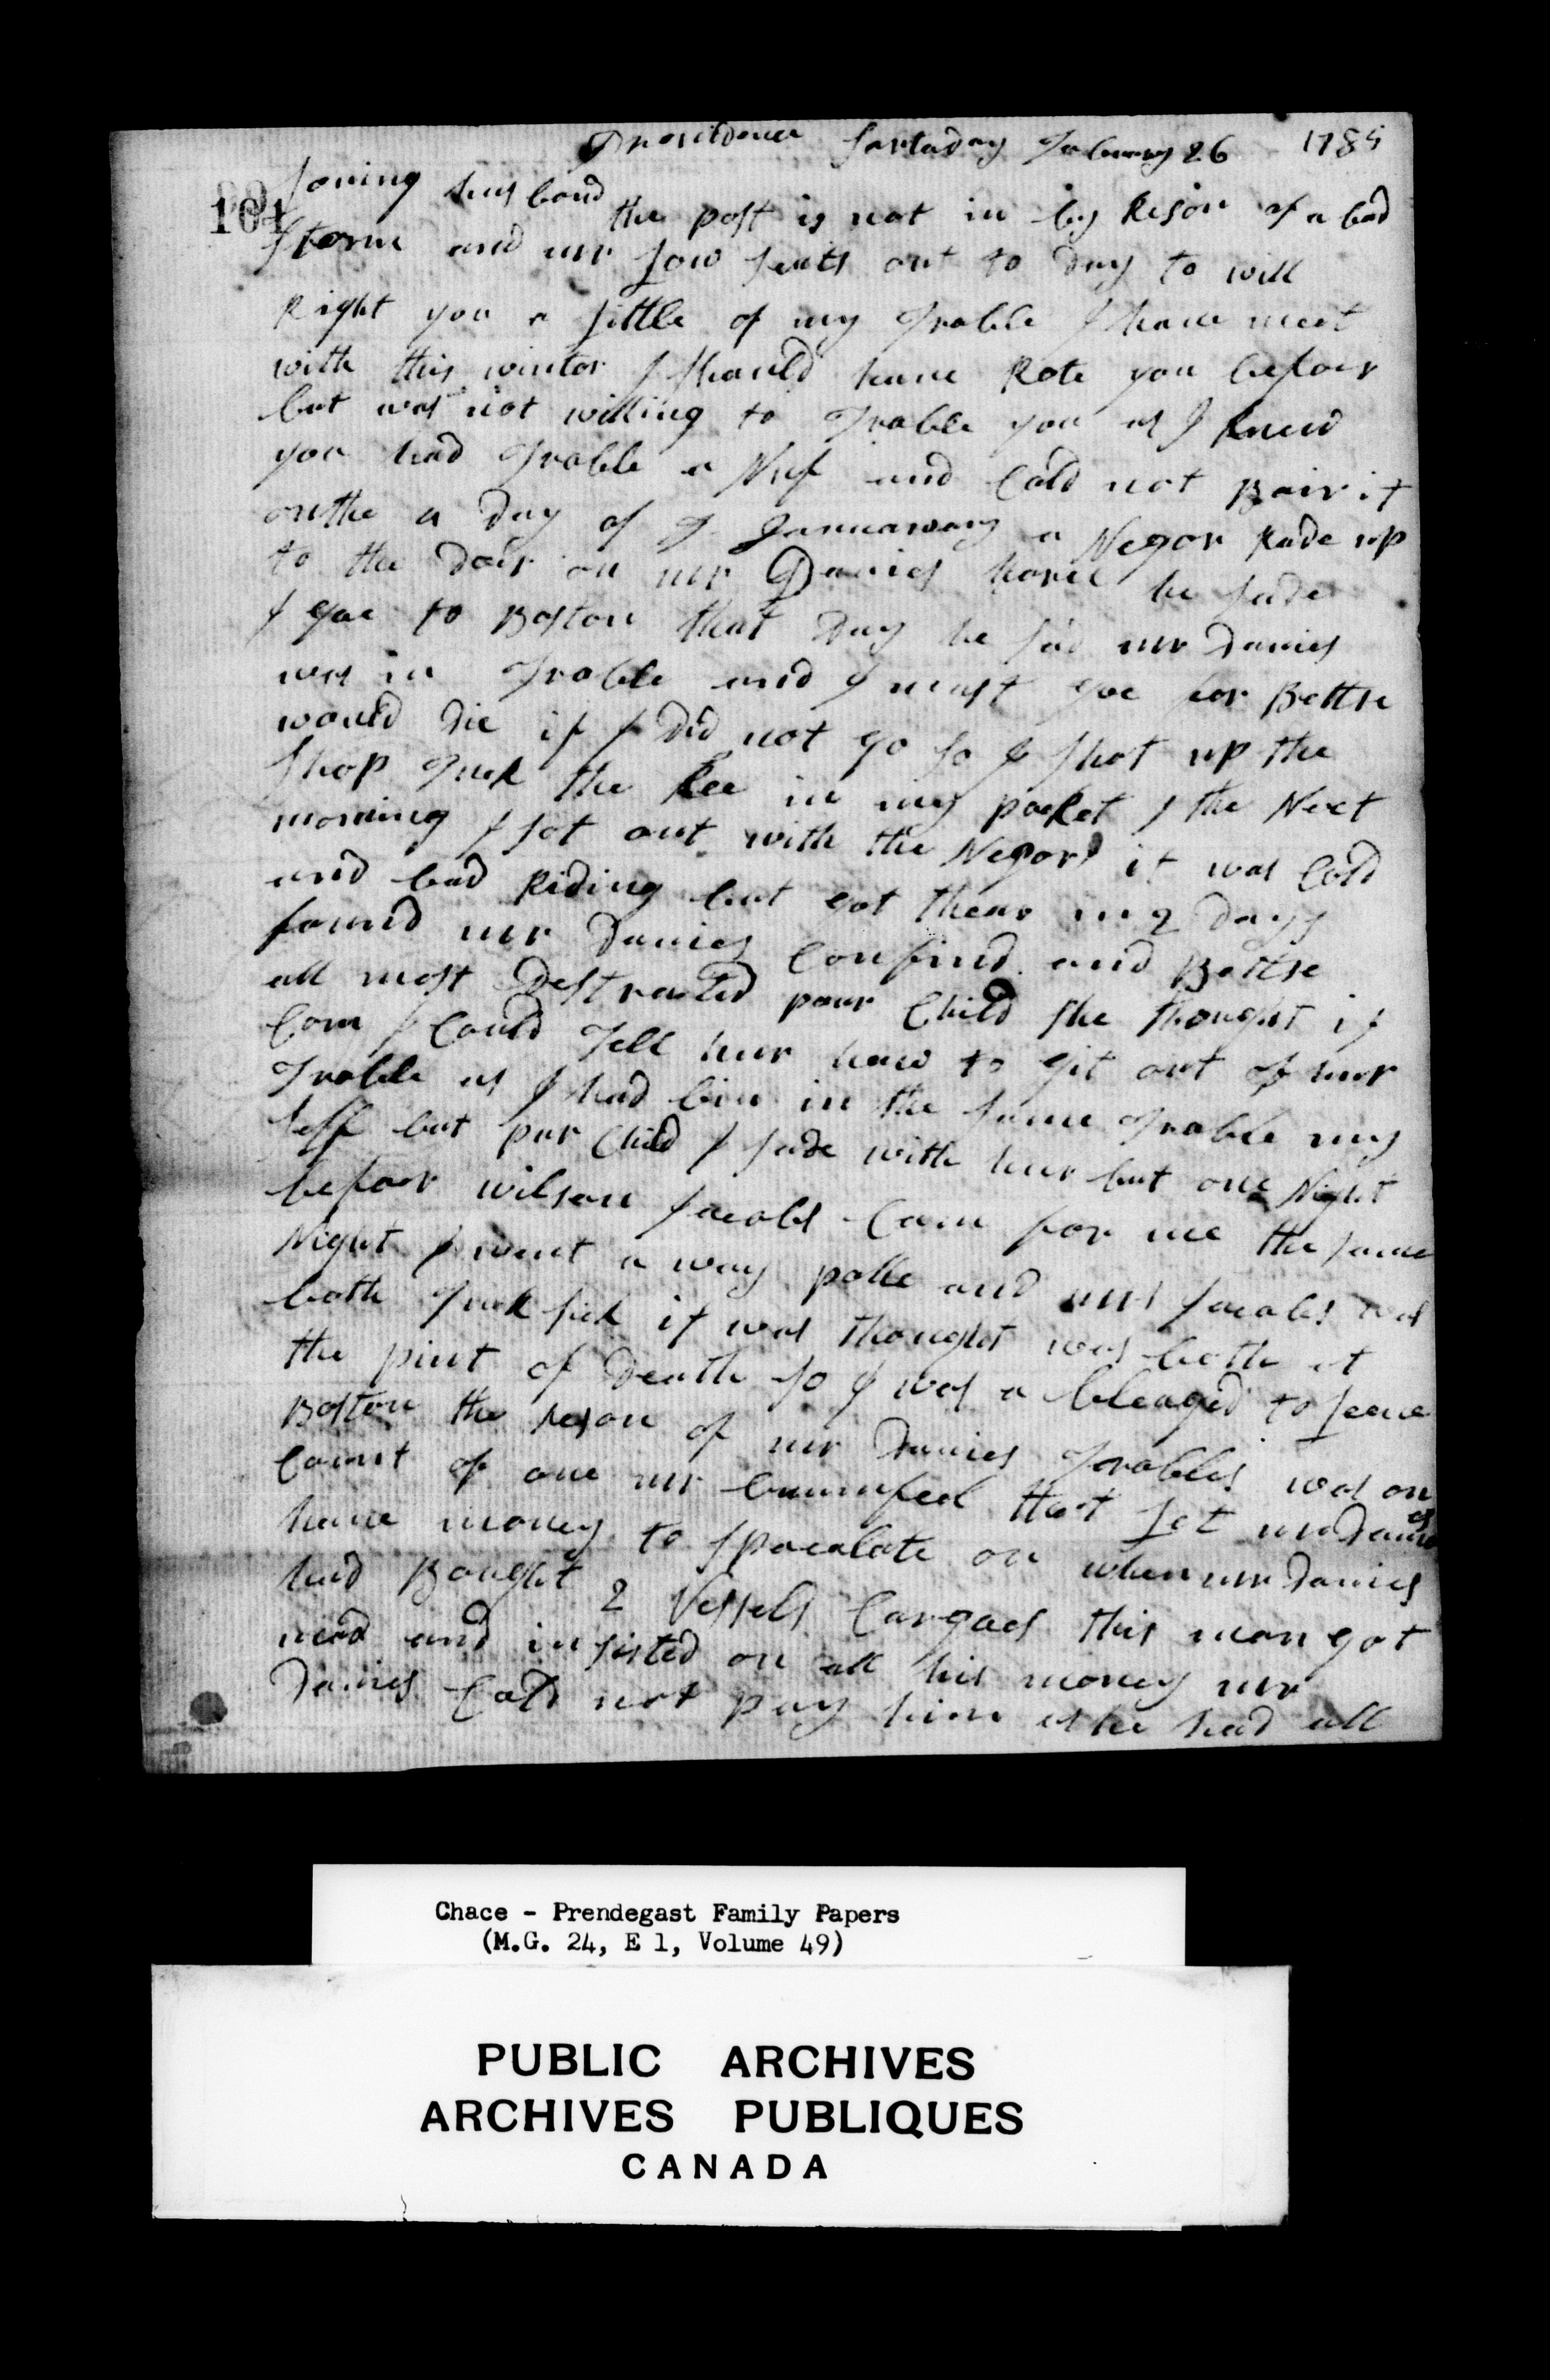 Providence Sartaday Febuary 26 1785
Loving husband
104
the post is not in by Reson of a bad
Storm and mr Low seats out to day to will
Right you a little of my Troble I have meet
with this winter I should have Rote you befoer
but was not willing to Troble you as I knew
you had Troble a Nuf and Cold not Bair it
on the a day of Jannawary a Negor Rade up
to the Doir on mr Davies horse he sade
I goe to Boston that Day he sad mr Davies
was in Troble and I must goe for Bettse
would Die if I Did not go so I shot up the
shop Tuck the Kee in my pocket I the Next
morning I sot out with the Negor it was Cold
and bad Riding but got thear in 2 Days
found mr Davies Confind and Bettse
all most Destracted pour Child she thought if
Com I Could Tell hur how to git out of hur
Troble as I had bin in the same Troble my
self but pur Child I sade with hur but one Night
befoor wilson Jacobs Cam for me the same
Night I went a way polle and mrs Jacobs was
both Tuck sick it was thought was both at
the pint of Death so I was a bleaged to leave
Boston the reson of mr Davies Trobles was on
Count of one mr that Let mr Davies
have money to Speculate on when mr Davies
had Bought 2 Vessels Cargoes this man got
mad and insisted on all his money mr
Davies Cold not pay him as he had all
Chace - Prendegast Family Papers
(M.G. 24, E 1, Volume 49)
PUBLIC ARCHIVES
ARCHIVES PUBLIQUES
CANADA